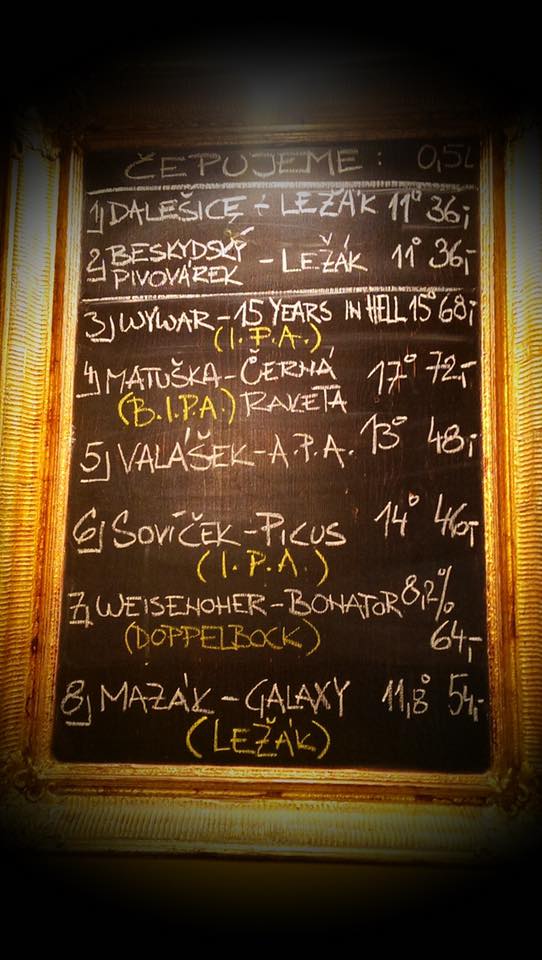 ČEPUJEME: 0,5L
1) DALEŠICE - LEŽÁK 11° 36,-
2) BESKYDSKÝ PIVOVÁREK - LEŽÁK 11° 36,-
3) WYWAR - 15 YEARS IN HELL 15° 68,-
(I.P.A.)
4) MATUŠKA - ČERNÁ 17° 72,-
(B.I.P.A.) RAKETA
5) VALÁŠEK - A.P.A. 13° 48,-
6) SOVÍČEK - PICUS 14° 46,-
(I.P.A.)
7) WEISENOHER - BONATOR 8,2%
(DOPPELBOCK) 64,-
8) MAZÁK - GALAXY 11,8° 54,-
(LEŽÁK)